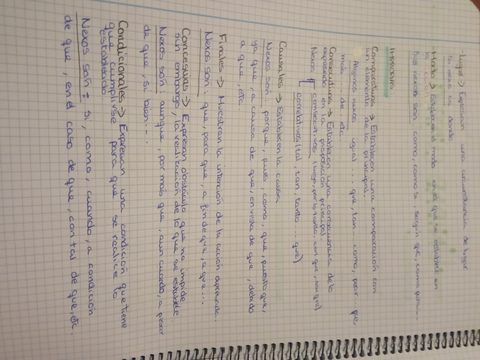 Lugar → Expresan una circunstancia de lugar
donde
Modo → Establecen el modo en el que se realiza
Sus nexos son como, como si, según que,
Comparativas → Establecen una comparación con
principal
Algunos nexos: igual... que, tan como, peor que,
más de, etc.
Consecutivas → Establecen una consecuencia de lo
expresado en la proposición principal
Nexos consecutivos (luego, por lo tanto, así que,
tan tanto que)
Causales → Establecen la causa
Nexos son: porque, pues, como, que, puesto que,
ya que, a causa de que, en vista de que, debido
a que, etc.
Finales → Muestran la intención de la acción
Nexos son: que, para que, a fin de que, a que...
Concesivas → Expresan obstáculo que no impide,
sin embargo, la realización de lo que se establece
Nexos son aunque, por más que, aun cuando, a pesar
de que, si bien...
Condicionales → Expresan una condición que tiene
que cumplirse para que se realice lo
establecido
Nexos son: si, como, cuando, a condición
de que, en el caso de que, con tal de que, etc.